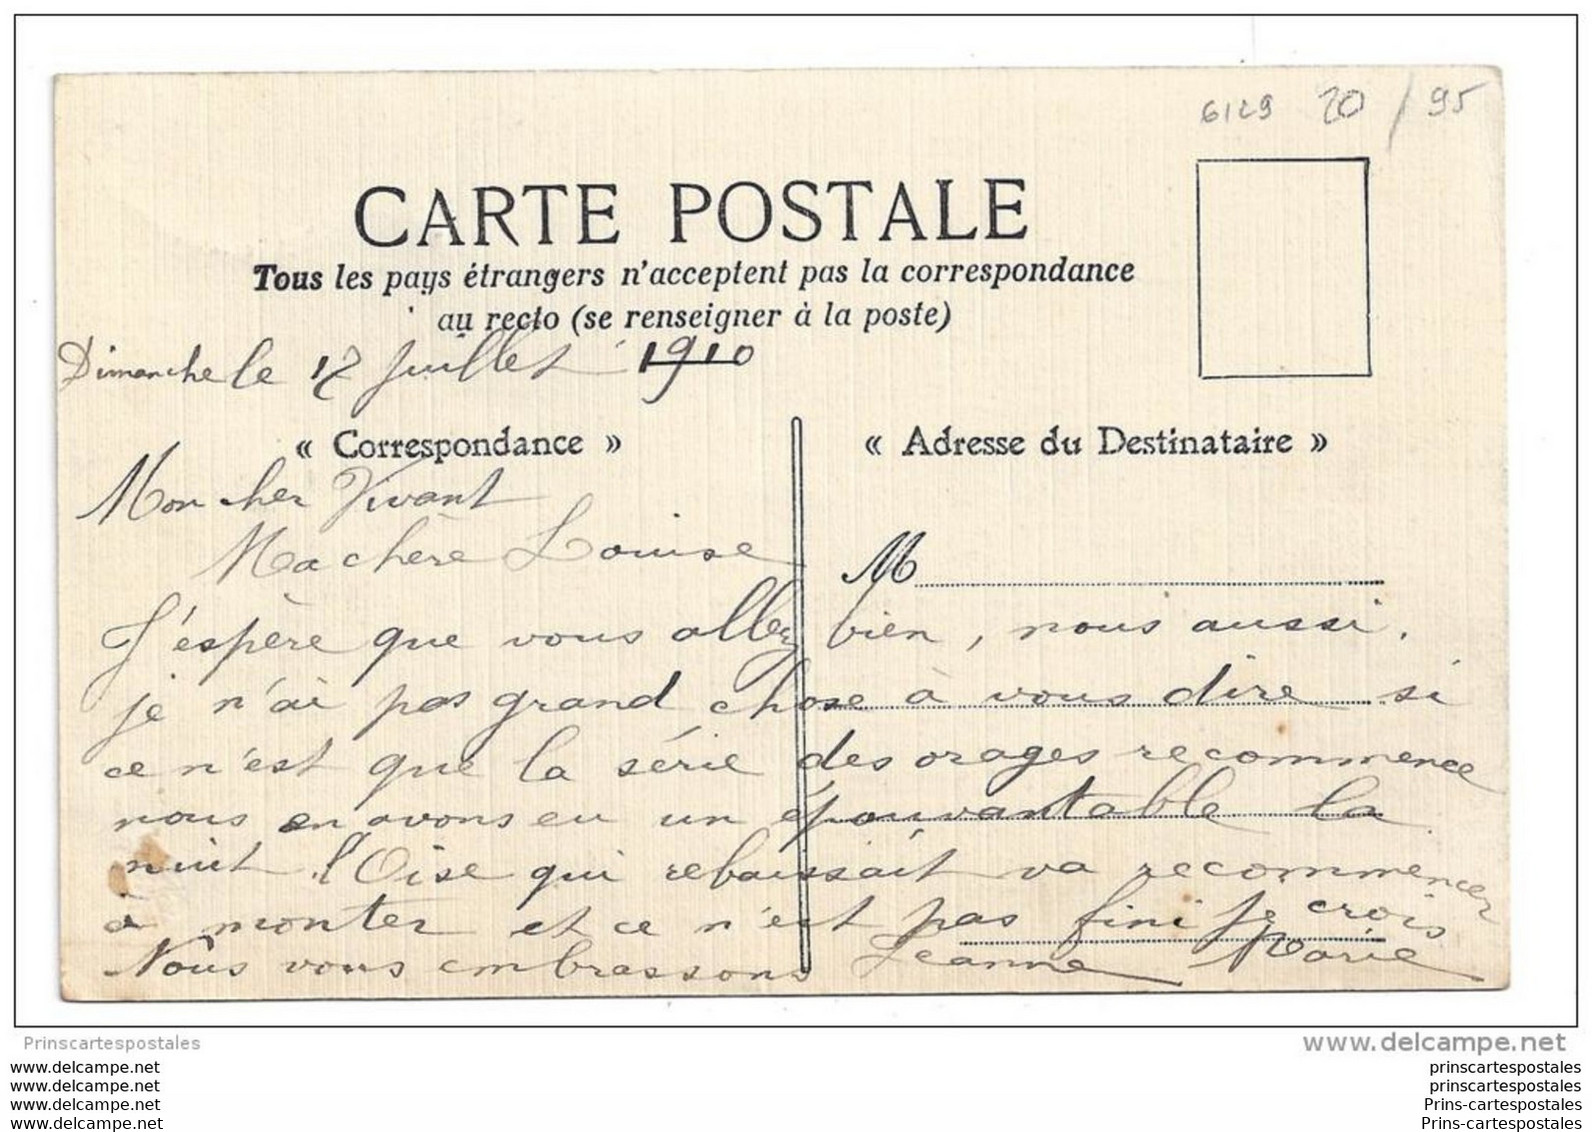 6129 20 / 95
CARTE POSTALE
Tous les pays étrangers n'acceptent pas la correspondance
au recto (se renseigner à la poste)
Dimanche le 17 Juillet 1910
« Correspondance »
« Adresse du Destinataire »
Mon cher Vivant
Ma chère Louise
M
J'espère que vous allez bien, nous aussi,
je n'ai pas grand chose à vous dire si
ce n'est que la série des orages recommence
nous en avons eu un épouvantable la
nuit l'Oise qui rebaissait va recommencer
à monter et ce n'est pas fini je crois
Nous vous embrassons Jeanne Marie
Prinscartespostales
www.delcampe.net
www.delcampe.com
www.delcampe.com
www.delcampe.com
www.delcampe.com
prinscartespostales
prinscartespostales
Prins-cartespostales
Prins-cartespostales